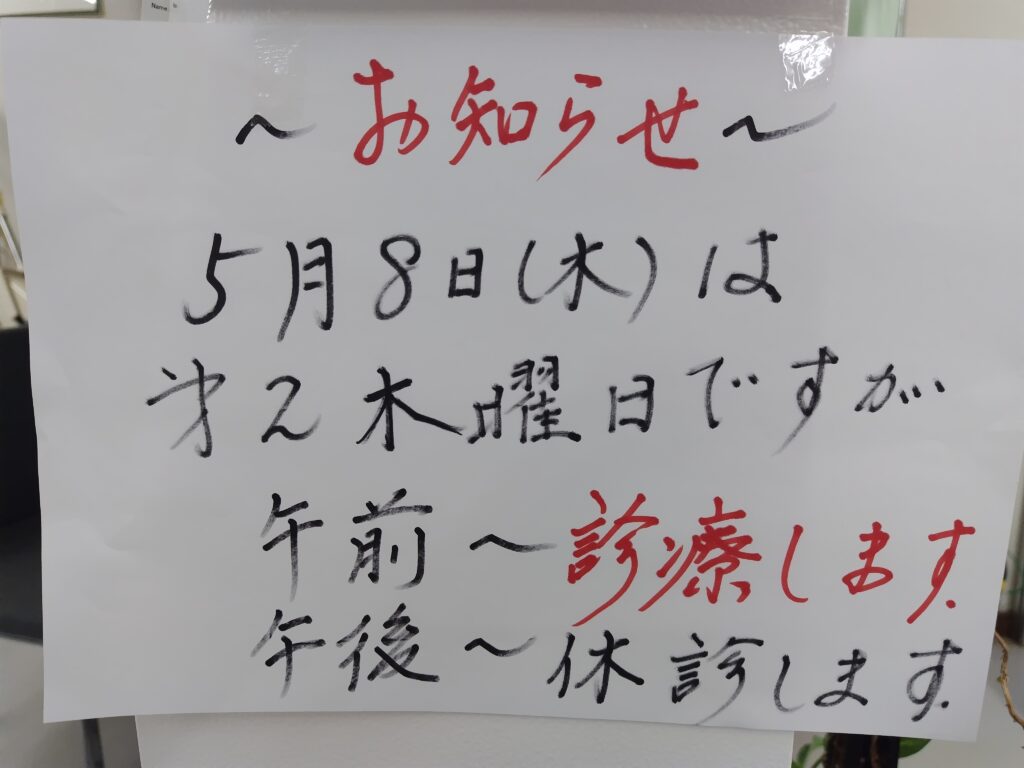 Name
～お知らせ～
5月8日(木)は
第2木曜日ですが
午前～診療します.
午後～休診します.